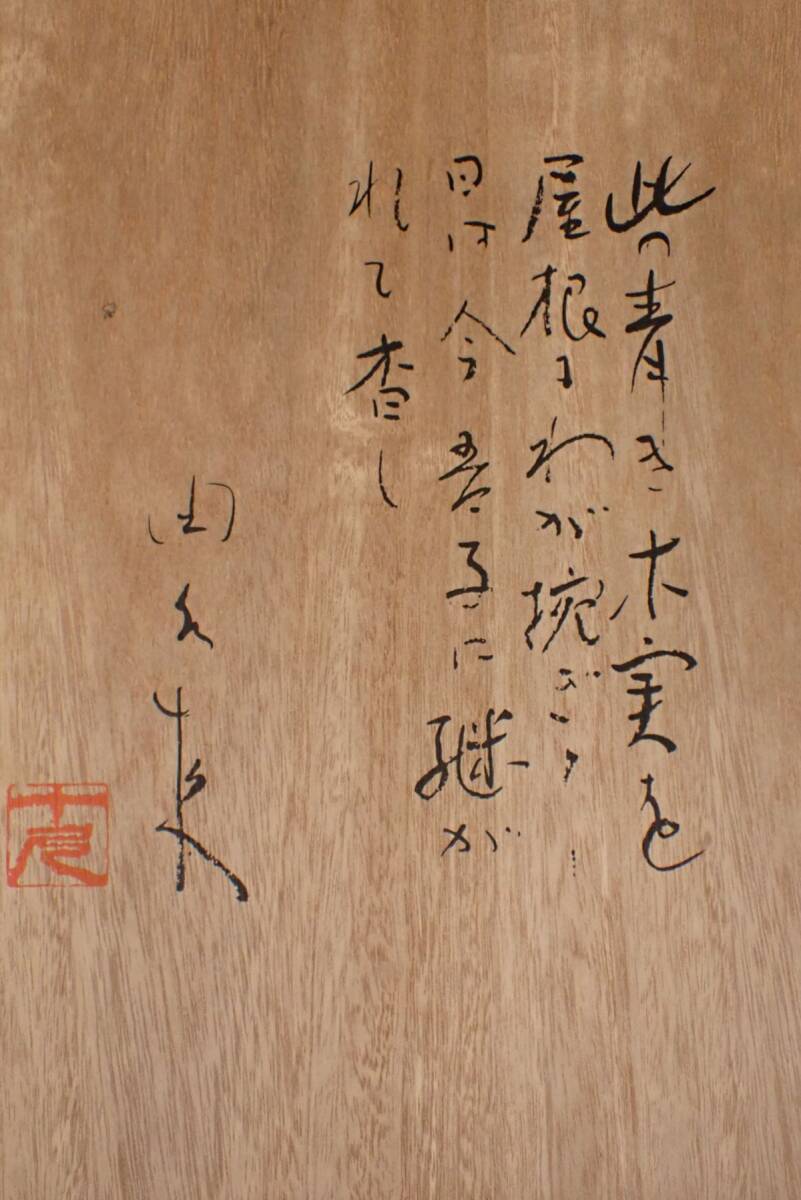 此の青き木実を
屋根にわが捥ぎし
日は今吾子に継が
れて杳し